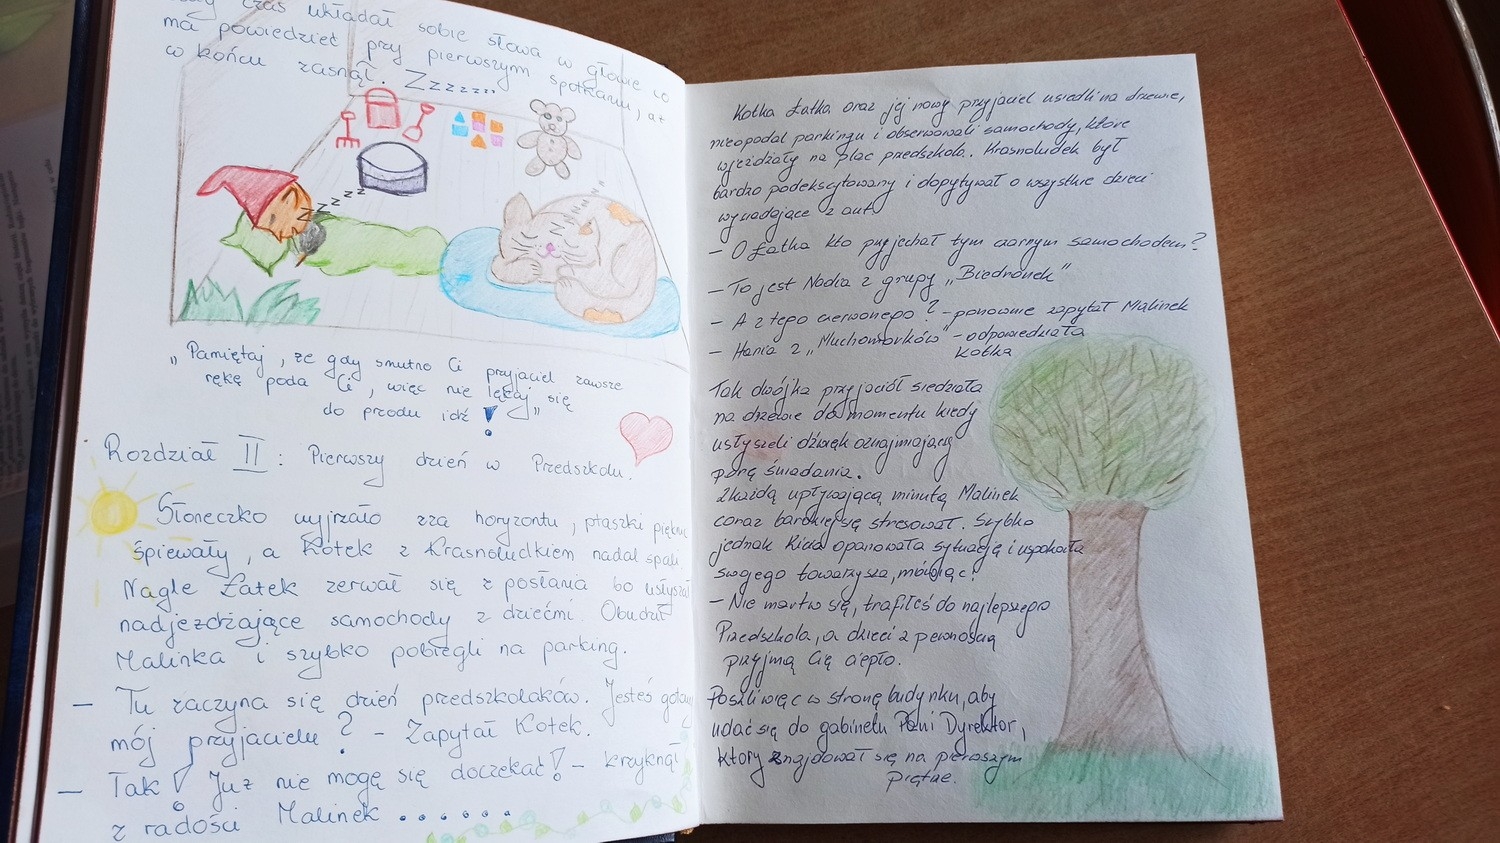 czas układał sobie słowa w głowie co
ma powiedzieć przy pierwszym spotkaniu, aż
w końcu zasnął. Zzzzzz
zzzzz
„Pamiętaj, że gdy smutno Ci przyjaciel zawsze
rękę poda Ci, więc nie lękaj się
do przodu idź!"
Rozdział II: Pierwszy dzień w Przedszkolu.
Słoneczko wyjrzało zza horyzontu, ptaszki pięknie
śpiewały, a Kotek z Krasnoludkiem nadal spali.
Nagle Łatek zerwał się z posłania bo usłyszał
nadjeżdżające samochody z dziećmi. Obudził
Malinka i szybko pobiegli na parking.
– Tu zaczyna się dzień przedszkolaków. Jesteś gotowy
mój przyjacielu? – Zapytał Kotek.
– Tak! Już nie mogę się doczekać! – krzyknął
z radości Malinek.......
Kotka Łatka oraz jej nowy przyjaciel usiedli na drzewie,
nieopodal parkingu i obserwowali samochody, które
wjeżdżały na plac przedszkola. Krasnoludek był
bardzo podekscytowany i dopytywał o wszystkie dzieci
wysiadające z aut.
– O Łatka kto przyjechał tym czarnym samochodem?
– To jest Nadia z grupy „Biedronek"
– A z tego czerwonego? – ponownie zapytał Malinek
– Hania z „Muchomorków" – odpowiedziała
kotka
Tak dwójka przyjaciół siedziała
na drzewie do momentu kiedy
usłyszeli dźwięk oznajmiający
porę śniadania.
Z każdą upływającą minutą Malinek
coraz bardziej się stresował. Szybko
jednak Kicia opanowała sytuację i uspokoiła
swojego towarzysza, mówiąc:
– Nie martw się, trafiłeś do najlepszego
Przedszkola, a dzieci z pewnością
przyjmą Cię ciepło.
Poszli więc w stronę budynku, aby
udać się do gabinetu Pani Dyrektor,
który znajdował się na pierwszym
piętrze.